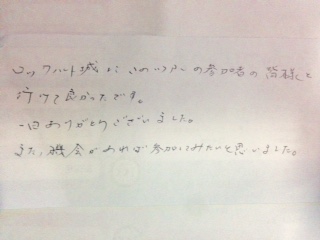 ロックハート城にこのツアーの参加者の皆様と
行けて良かったです。
一日ありがとうございました。
また、機会があれば参加してみたいと思いました。